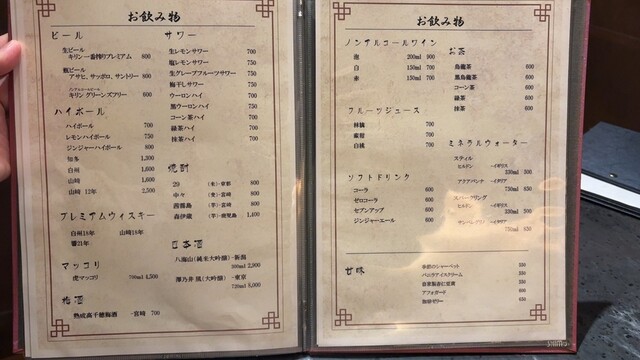 お飲み物
ビール
生ビール
キリン一番搾りプレミアム 800
瓶ビール
アサヒ、サッポロ、サントリー 800
ノンアルコールビール
キリン グリーンズフリー 600
ハイボール
ハイボール 700
レモンハイボール 750
ジンジャーハイボール 800
知多 1,300
白州 1,600
山崎 1,600
山崎 12年 2,500
プレミアムウィスキー
白州18年 山崎18年
響21年
マッコリ
虎マッコリ 700ml 4,500
梅酒
熟成高千穂梅酒 -宮崎 700
サワー
生レモンサワー 700
塩レモンサワー 750
生グレープフルーツサワー 750
梅干しサワー 750
ウーロンハイ 700
黒ウーロンハイ 700
コーン茶ハイ 700
緑茶ハイ 700
抹茶ハイ 700
焼酎
29 (米)-京都 800
中々 (麦)-宮崎 800
茜霧島 (芋)-宮崎 800
森伊蔵 (芋)-鹿児島 1,100
日本酒
八海山(純米大吟醸)-新潟
300ml 2,900
澤乃井 凰(大吟醸) -東京
720ml 8,000
お飲み物
ノンアルコールワイン
泡 200ml 900
白 150ml 700
赤 150ml 700
フルーツジュース
林檎 700
蜜柑 700
白桃 700
ソフトドリンク
コーラ 600
ゼロコーラ 600
セブンアップ 600
ジンジャーエール 600
お茶
烏龍茶 600
黒烏龍茶 600
コーン茶 600
緑茶 600
抹茶 600
ミネラルウォーター
スティル
ヒルドン -イギリス
330ml 500
アクアパンナ -イタリア
750ml 850
スパークリング
ヒルドン -イギリス
330ml 500
サンペレグリノ -イタリア
750ml 850
甘味
季節のシャーベット 350
バニラアイスクリーム 350
自家製杏仁豆腐 400
アフォガード 550
珈琲ゼリー 650